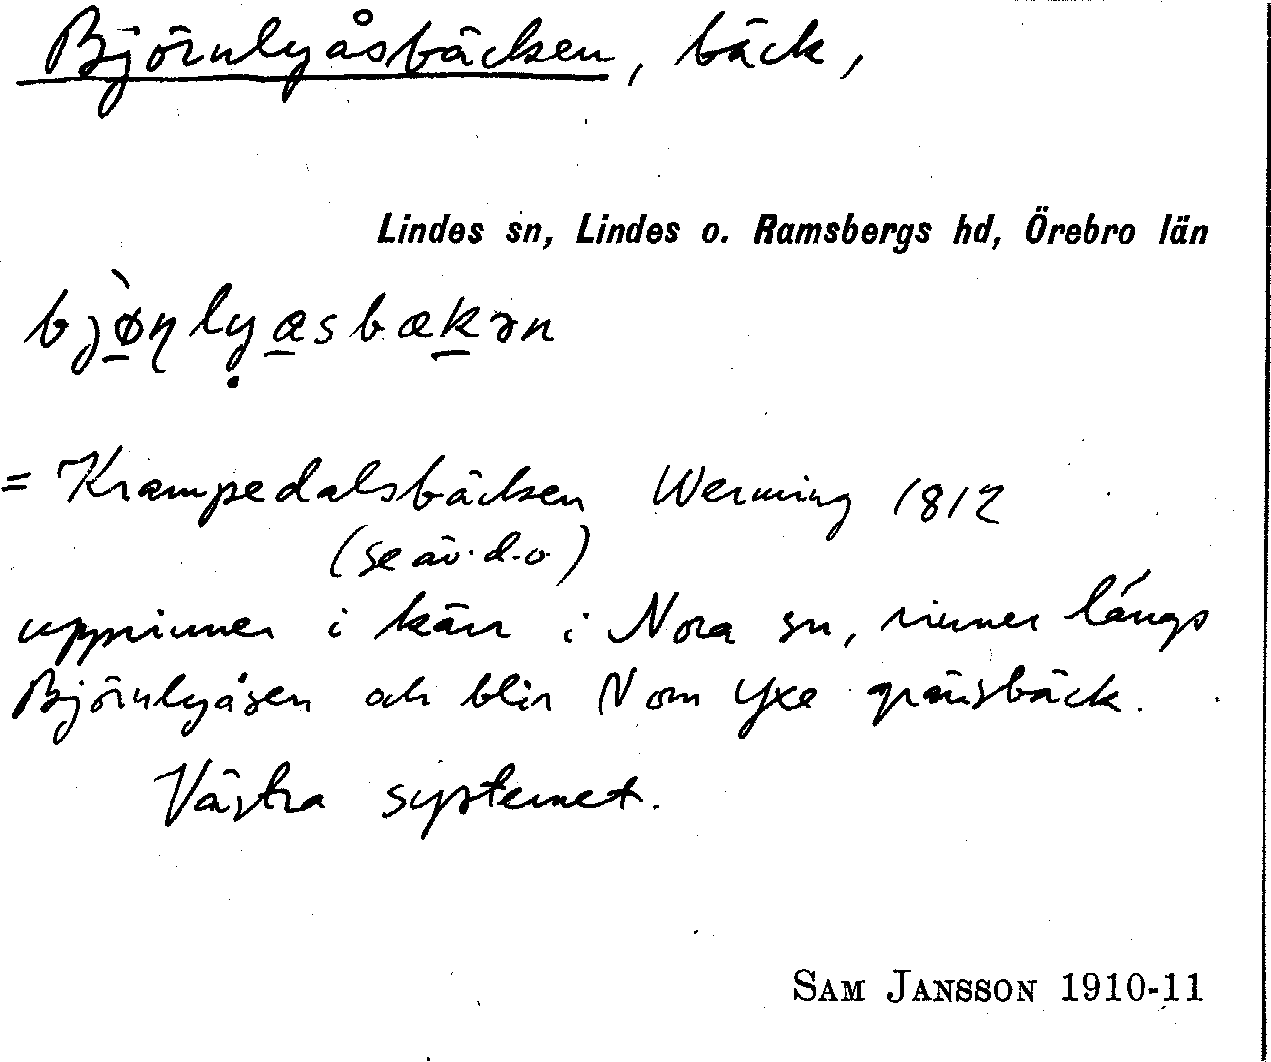 Björnlyåsbäcken, bäck,
Lindes sn, Lindes o. Ramsbergs hd, Örebro län
bjø̀ɳlyæsbækən
= Krampedalsbäcken Werming 1812
(se äv. d.o)
upprinner i kärr i Nora sn, rinner längs
Björnlyåsen och blir N om Yxe gränsbäck.
Västra systemet.
SAM JANSSON 1910-11